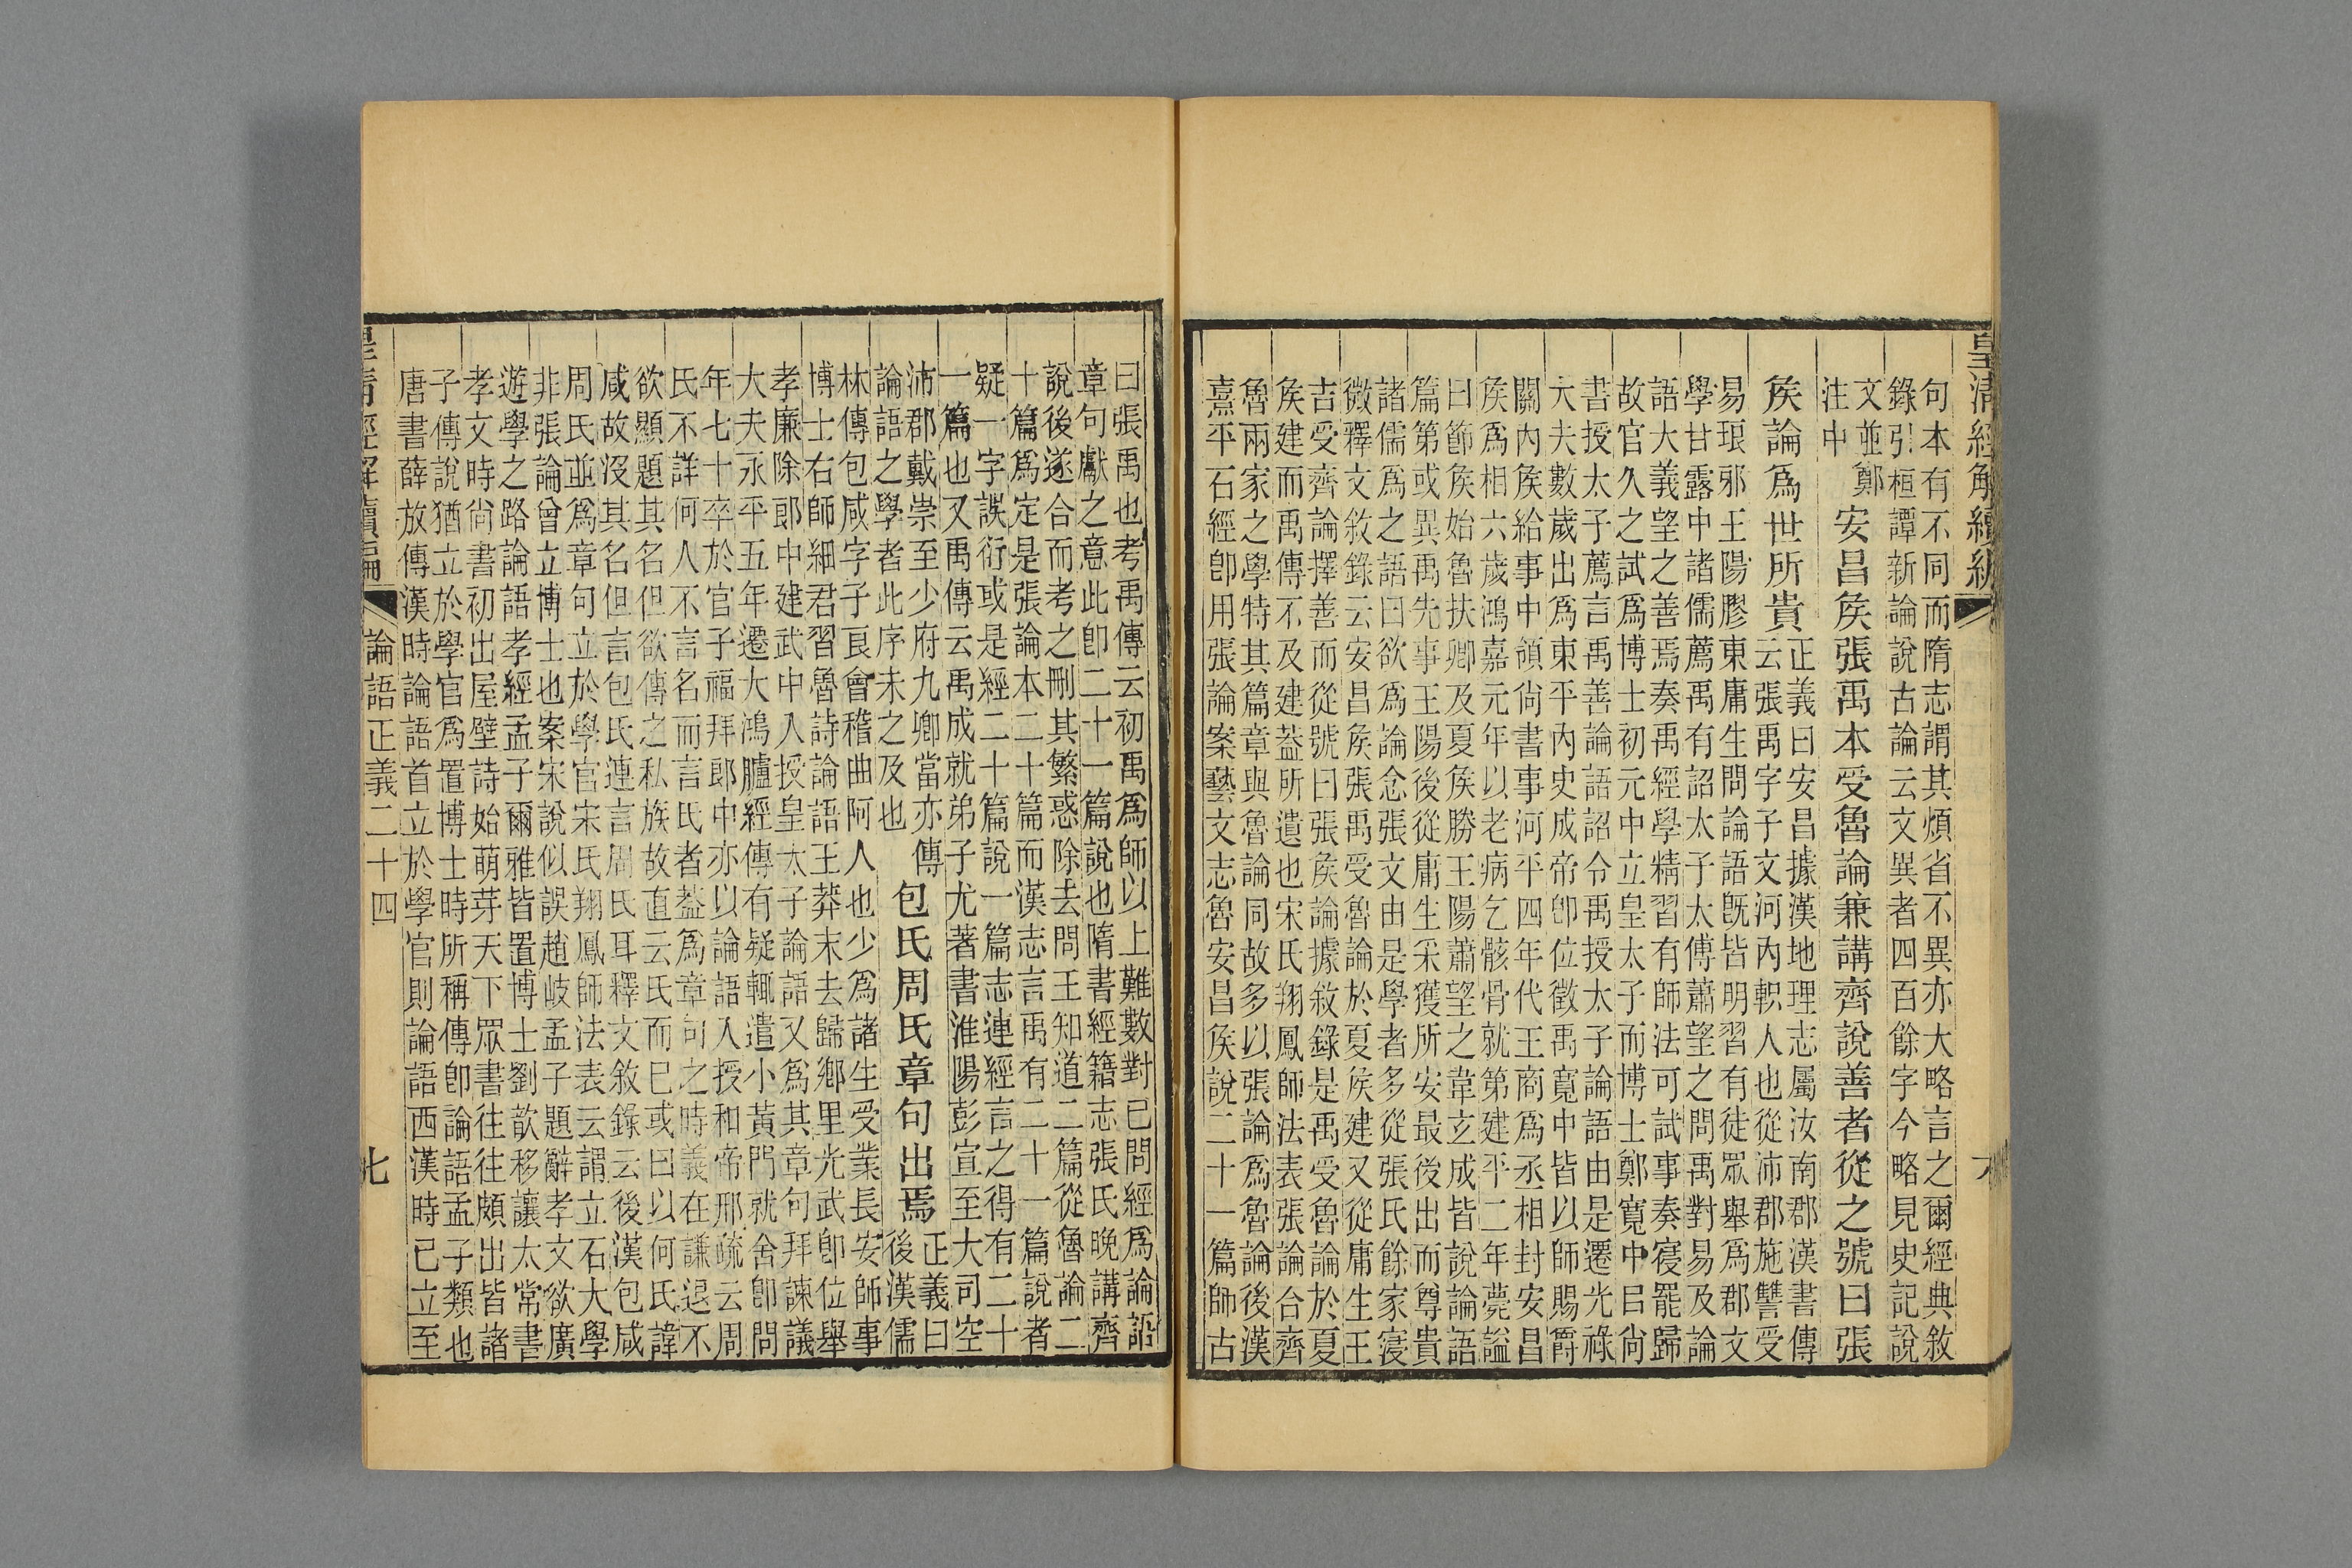 皇清經解續編
句本有不同而隋志謂其煩省不異亦大略言之爾經典敘
錄引桓譚新論說古論云文異者四百餘字今略見史記說
文並鄭
注中
安昌矦張禹本受魯論兼講齊說善者從之號曰張
矦論爲世所貴
正義曰安昌據漢地理志屬汝南郡漢書傳
云張禹字子文河內軹人也從沛郡施讐受
易琅邪王陽膠東庸生問論語旣皆明習有徒眾舉爲郡文
學甘露中諸儒薦禹有詔太子太傅蕭望之問禹對易及論
語大義望之善焉奏禹經學精習有師法可試事奏寑罷歸
故官久之試爲博士初元中立皇太子而博士鄭寬中㠯尚
書授太子薦言禹善論語詔令禹授太子論語由是遷光祿
大夫數歲出爲東平內史成帝卽位徵禹寬中皆以師賜爵
關內矦給事中領尚書事河平四年代王商爲丞相封安昌
矦爲相六歲鴻嘉元年以老病乞骸骨就第建平二年薨謚
曰節矦始魯扶卿及夏矦勝王陽蕭望之韋玄成皆說論語
篇第或異禹先事王陽後從庸生采獲所安最後出而尊貴
諸儒爲之語曰欲爲論念張文由是學者多從張氏餘家寖
微釋文敘錄云安昌矦張禹受魯論於夏矦建又從庸生王
吉受齊論擇善而從號曰張矦論據敘錄是禹受魯論於夏
矦建而禹傳不及建葢所遺也宋氏翔鳳師法表張論合齊
魯兩家之學特其篇章與魯論同故多以張論爲魯論後漢
熹平石經卽用張論案藝文志魯安昌矦說二十一篇師古
曰張禹也考禹傳云初禹爲師以上難數對已問經爲論語
章句獻之意此卽二十一篇說也隋書經籍志張氏晚講齊
說後遂合而考之刪其繁惑除去問王知道二篇從魯論二
十篇爲定是張論本二十篇而漢志言禹有二十一篇說者
疑一字誤衍或是經二十篇說一篇志連經言之得有二十
一篇也又禹傳云禹成就弟子尤著書淮陽彭宣至大司空
沛郡戴崇至少府九卿當亦傳
論語之學者此序未之及也
包氏周氏章句出焉
正義曰
後漢儒
林傳包咸字子良會稽曲阿人也少爲諸生受業長安師事
博士右師細君習魯詩論語王莽末去歸鄉里光武卽位舉
孝廉除郎中建武中入授皇太子論語又爲其章句拜諫議
大夫永平五年遷大鴻臚經傳有疑輒遣小黃門就舍卽問
年七十卒於官子福拜郎中亦以論語入授和帝邢疏云周
氏不詳何人不言名而言氏者葢爲章句之時義在謙退不
欲顯題其名但欲傳之私族故直云氏而已或曰以何氏諱
咸故沒其名但言包氏連言周氏耳釋文敘錄云後漢包咸
周氏並爲章句立於學官宋氏翔鳳師法表云謂立石大學
非張論曾立博士也案宋說似誤趙岐孟子題辭孝文欲廣
遊學之路論語孝經孟子爾雅皆置博士劉歆移讓太常書
孝文時尚書初出屋壁詩始萌芽天下眾書往往頗出皆諸
子傳說猶立於學官爲置博士時所稱傳卽論語孟子類也
唐書薛放傳漢時論語首立於學官則論語西漢時已立至
皇清經解續編
論語正義二十四
七